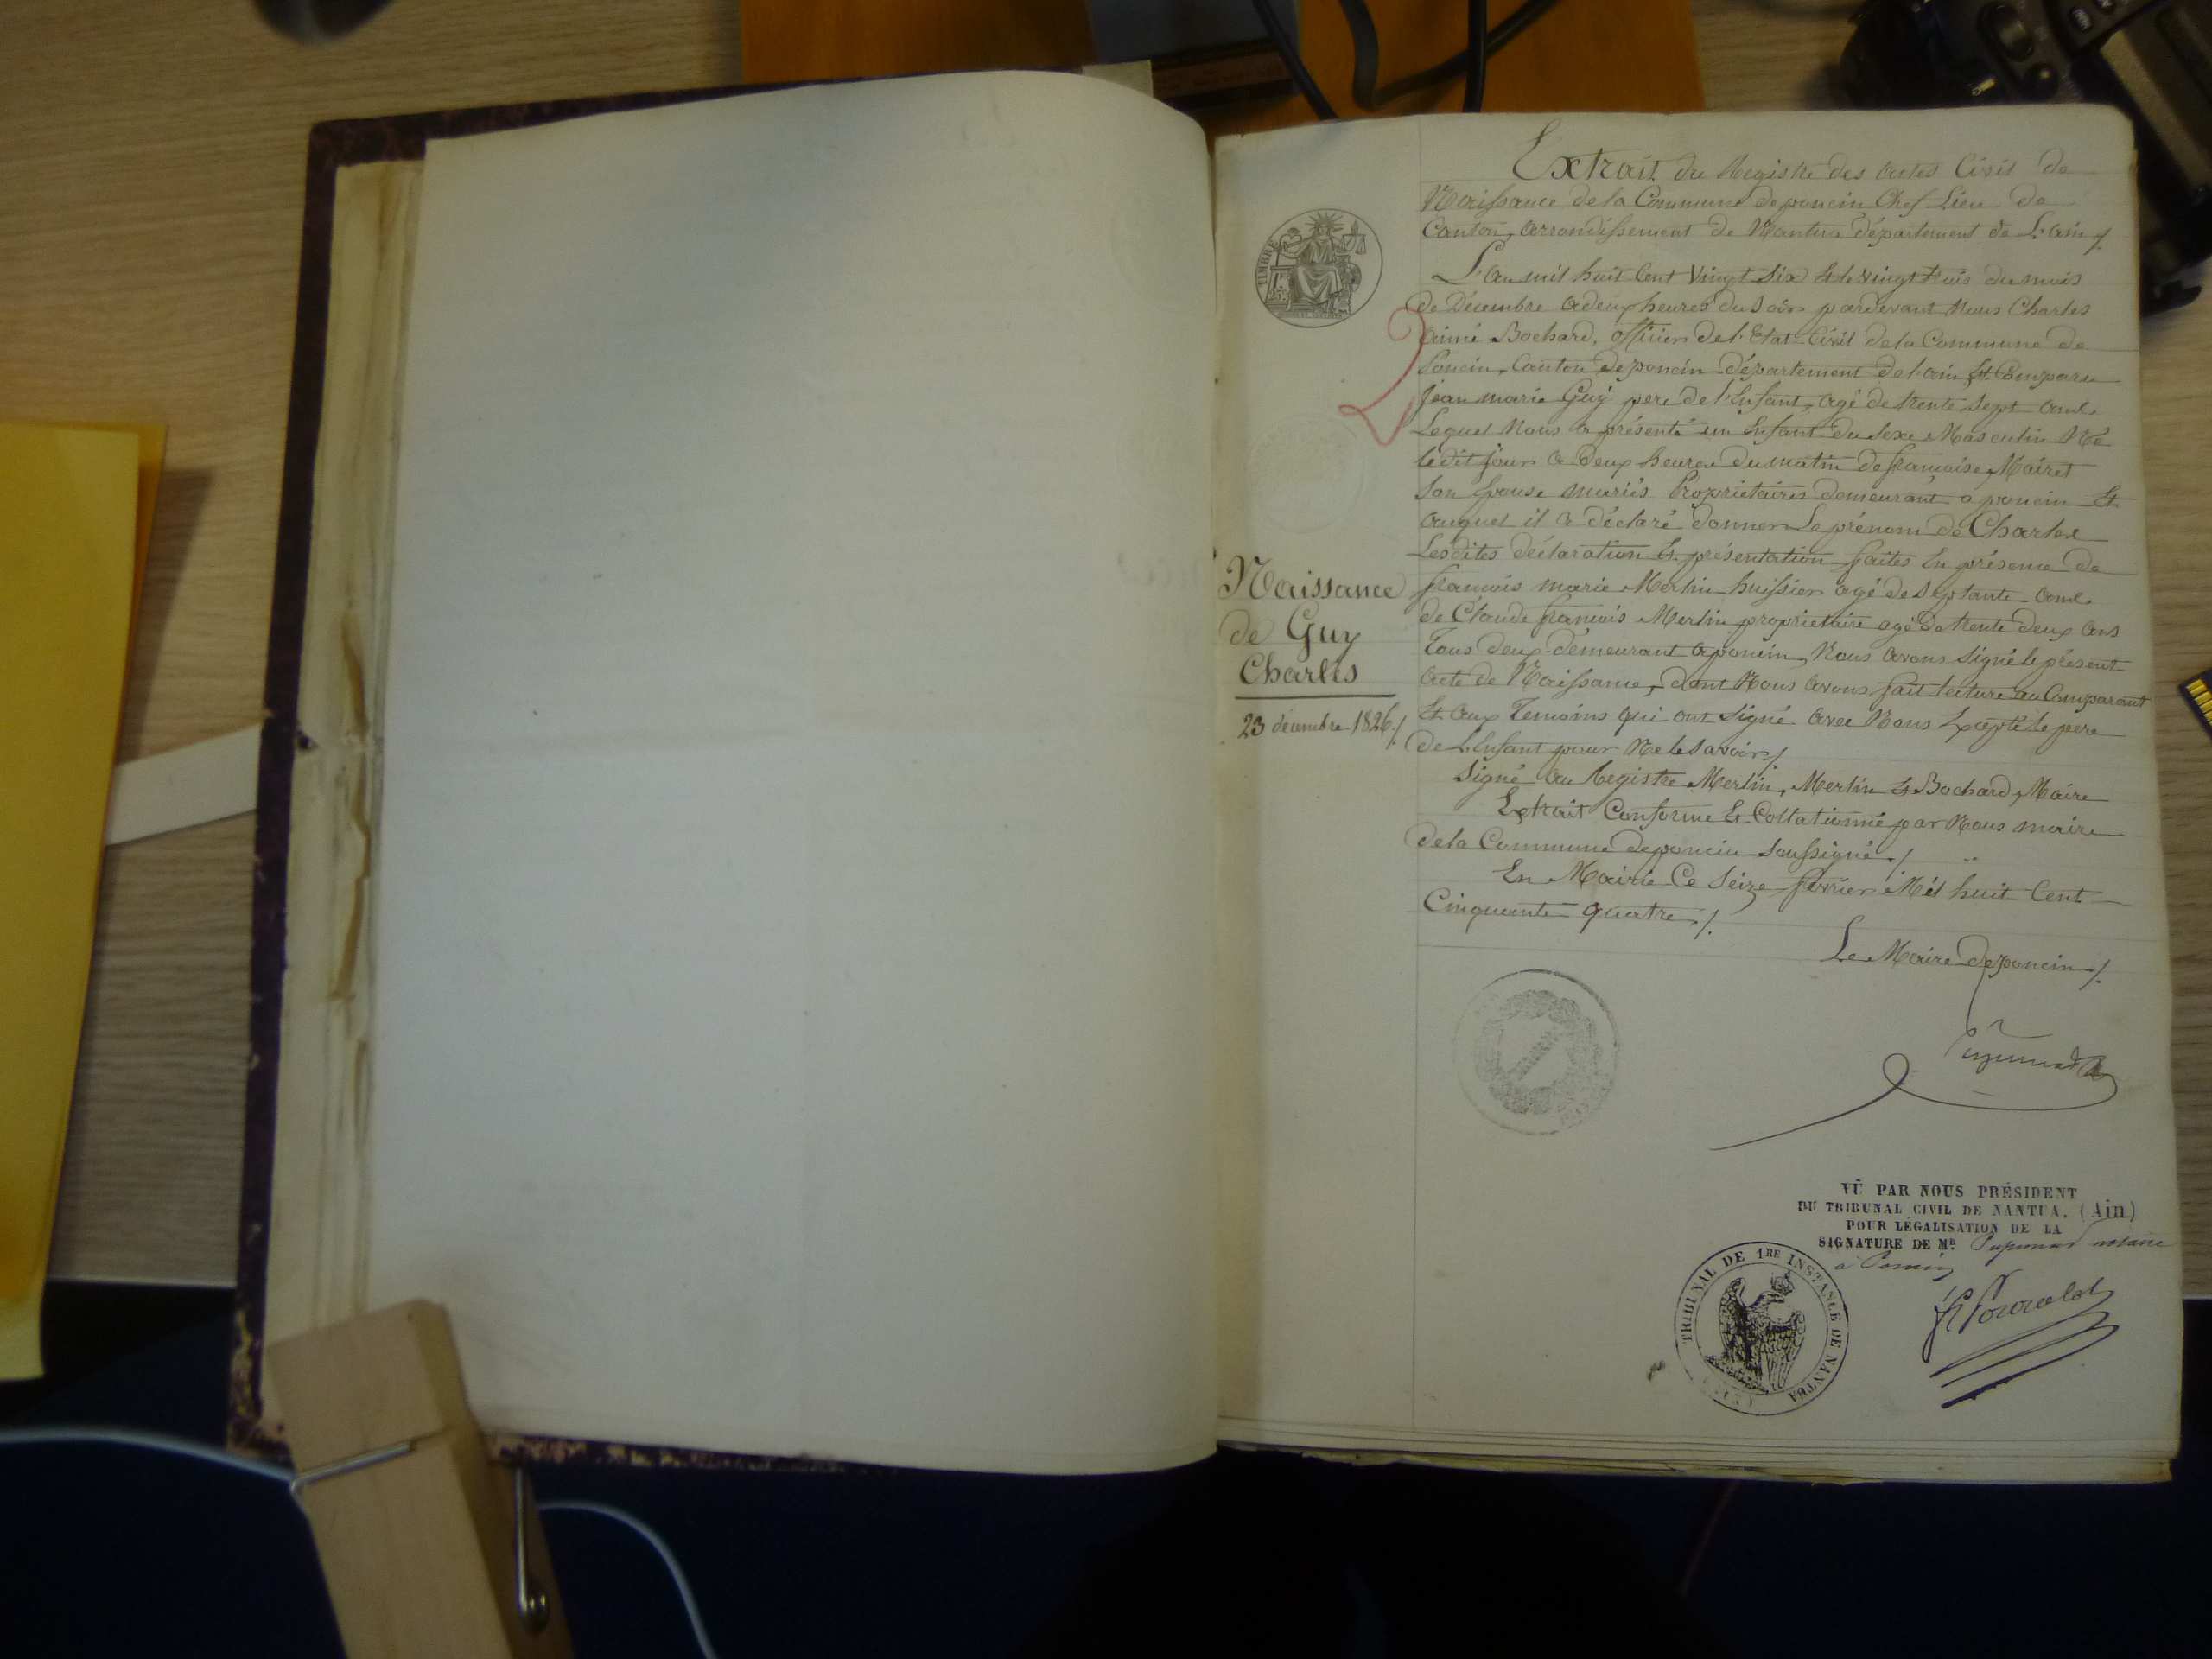 Extrait du Registre des actes Civil de
Naissance de la Commune de poncin Chef Lieu de
Canton, arrondissement de Nantua département de L'ain ./.
L'an mil huit Cent Vingt Six Et le vingt trois du mois
de Décembre a deux heures du Soir pardevant Nous Charles
aimé Bochard, officier de l'Etat Civil de la Commune de
Poncin, Canton de poncin département de l'ain Est Comparu
Jean marie Guy pere de l'Enfant, agé de trente Sept ans
Lequel Nous a présenté un Enfant du Sexe Masculin Né
ledit jour a Deux heures du matin de françoise Mairet
Son Epouse mariés Proprietaires demeurant a poncin Et
auquel il a déclaré donner Le prénom de Charles
Lesdites déclaration Et présentation faites En présence de
françois marie Merlin huissier agé de Septante ans
de Claude françois Merlin proprietaire agé de trente deux ans
Tous deux demeurant a poncin, Nous avons Signé le présent
acte de Naissance, dont Nous avons fait lecture au Comparant
Et aux Temoins qui ont Signé avec Nous Excepté le pere
de L'Enfant pour Ne le savoir ./.
Signé au Registre Merlin, Merlin Et Bochard, Maire
Extrait Conforme Et Collationné par Nous maire
de la Commune de poncin Soussigné ./.
En Mairie Ce Seize fevrier Mil huit Cent
Cinquante quatre ./.
Le Maire de poncin ./.
TIMBRE
2
Naissance
de Guy
Charles
23 décembre 1826 ./.
VU PAR NOUS PRÉSIDENT
DU TRIBUNAL CIVIL DE NANTUA. (Ain)
POUR LÉGALISATION DE LA
SIGNATURE DE MR maire
à Poncin
TRIBUNAL DE 1RE INSTANCE DE NANTUA